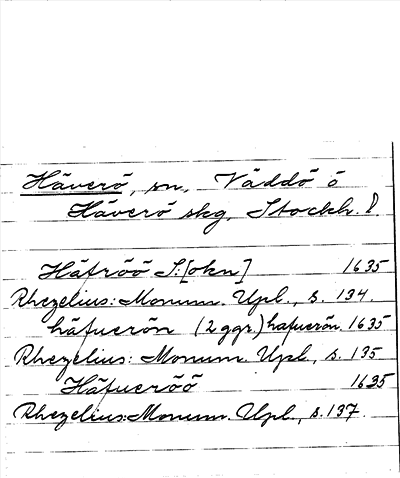 Häverö, sn, Väddö ö
Häverö skg, Stockh. l.
Häfröö S:[okn] 1635
Rhezelius: Monum. Upl., s. 134.
häfuerön (2 ggr.) hafuerön. 1635
Rhezelius: Monum. Upl., s. 135
Häfueröö 1635
Rhezelius: Monum. Upl., s. 137.